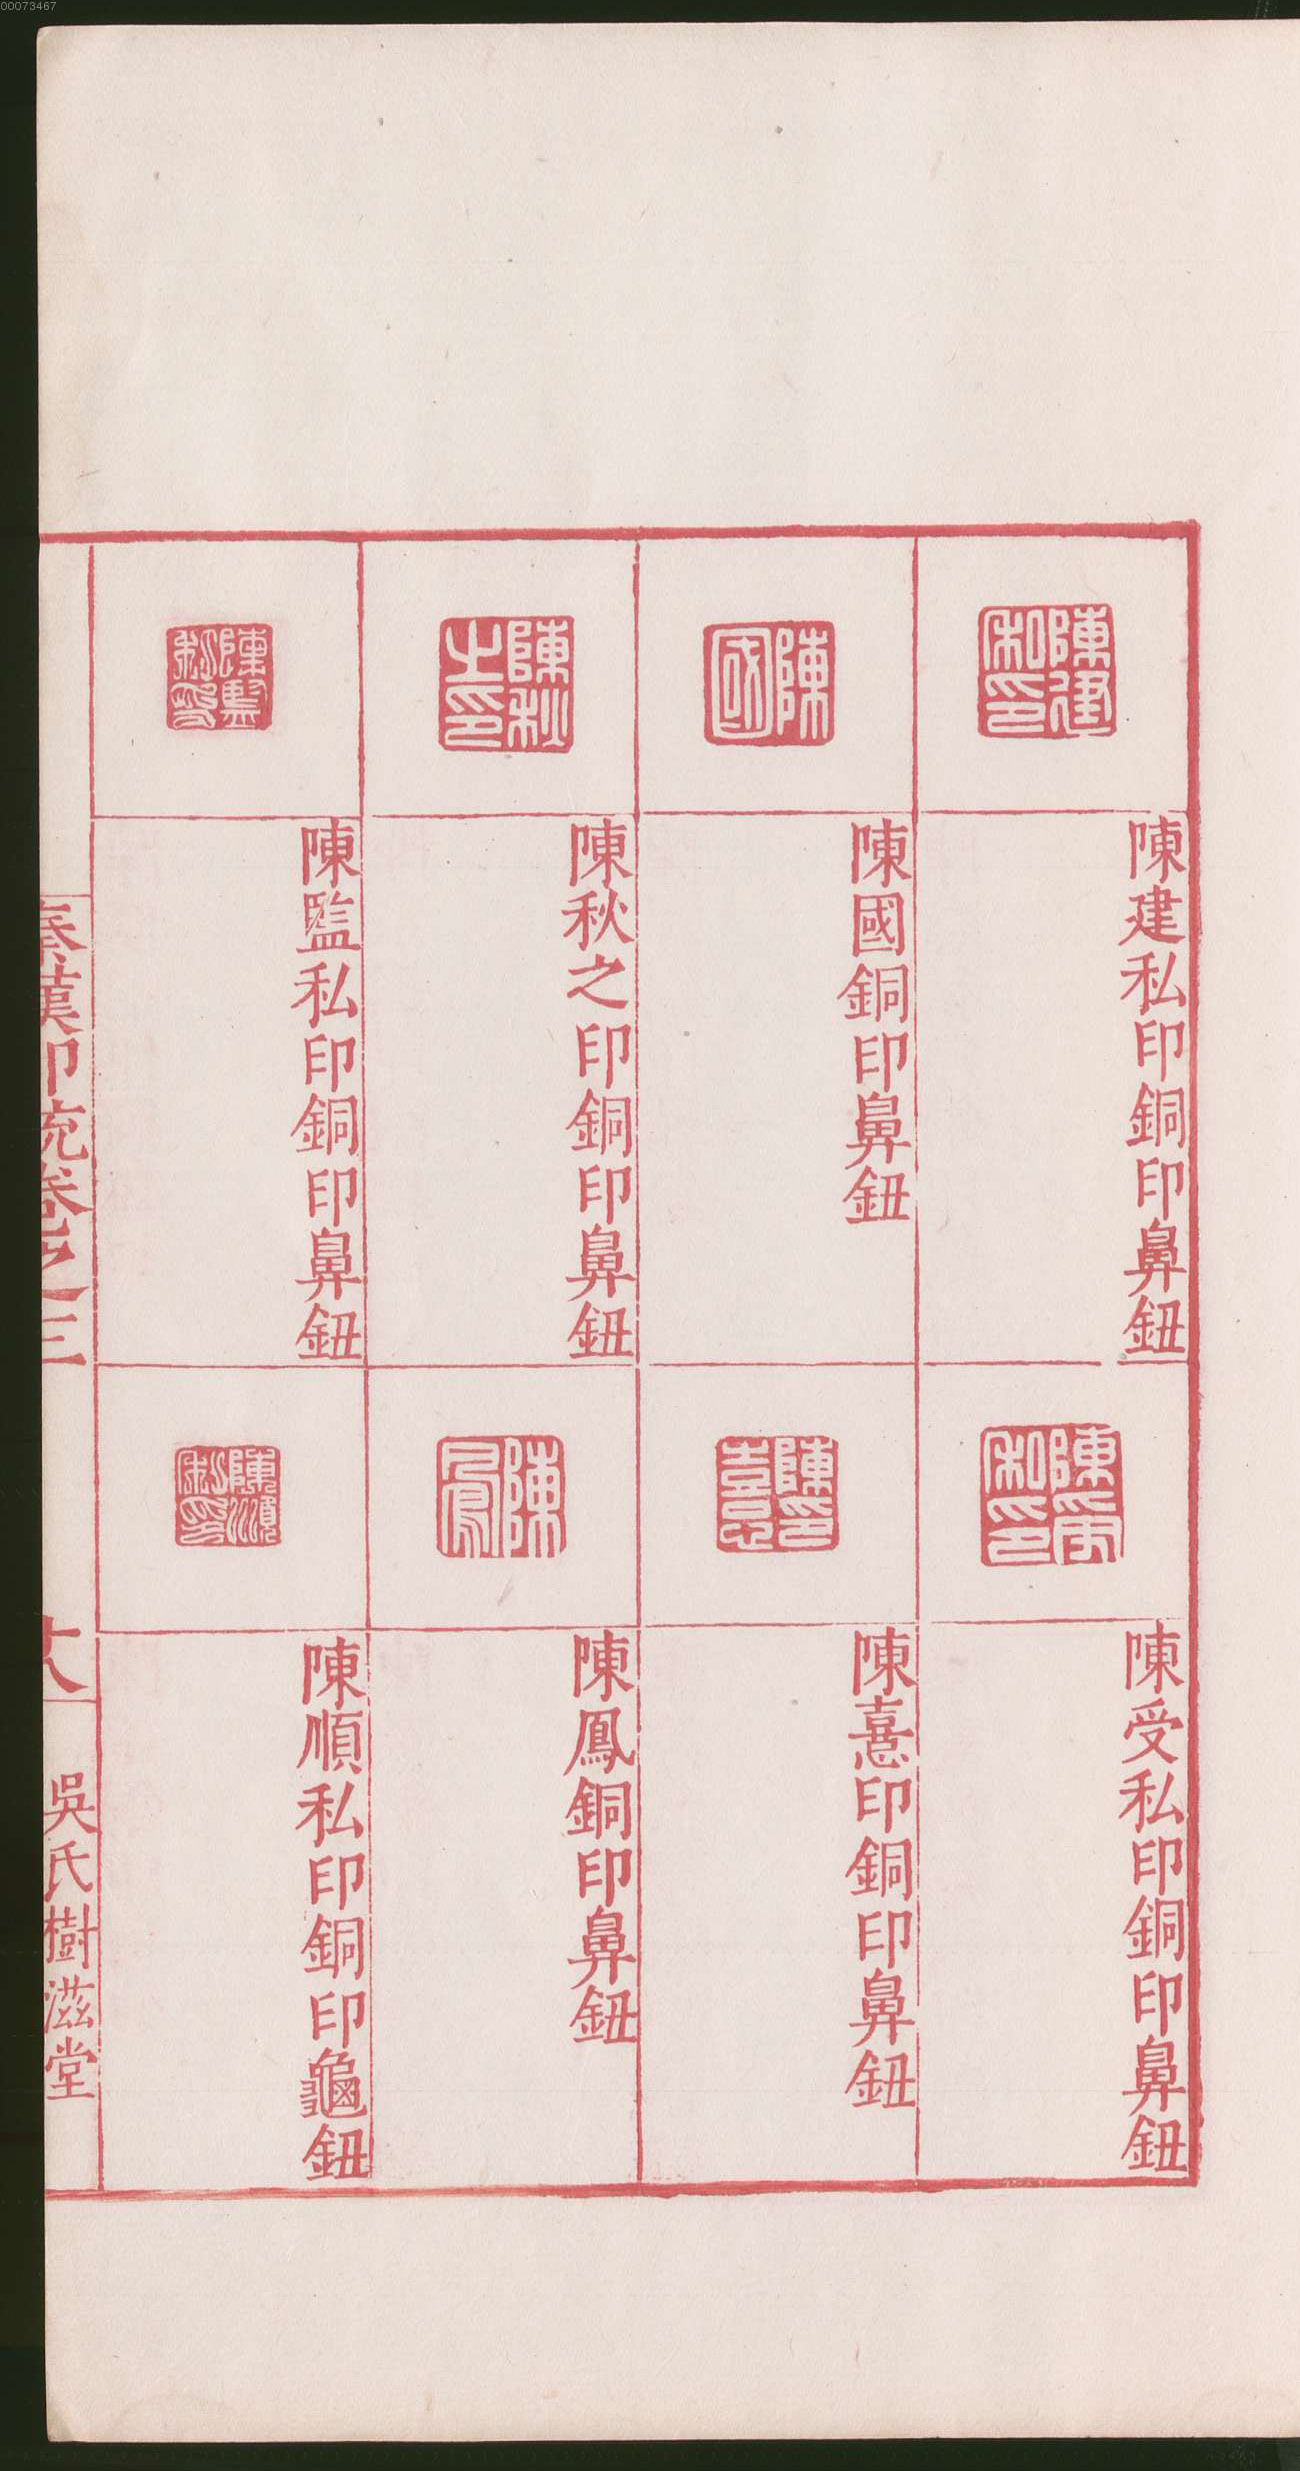 00073467
陳建私印
陳建私印銅印鼻鈕
陳受私印
陳受私印銅印鼻鈕
陳國
陳國銅印鼻鈕
陳印
陳憙印銅印鼻鈕
陳秋之印
陳秋之印銅印鼻鈕
陳鳳
陳鳳銅印鼻鈕
陳監私印
陳監私印銅印鼻鈕
陳順私印
陳順私印銅印龜鈕
秦漢印統卷之三
吳氏樹滋堂